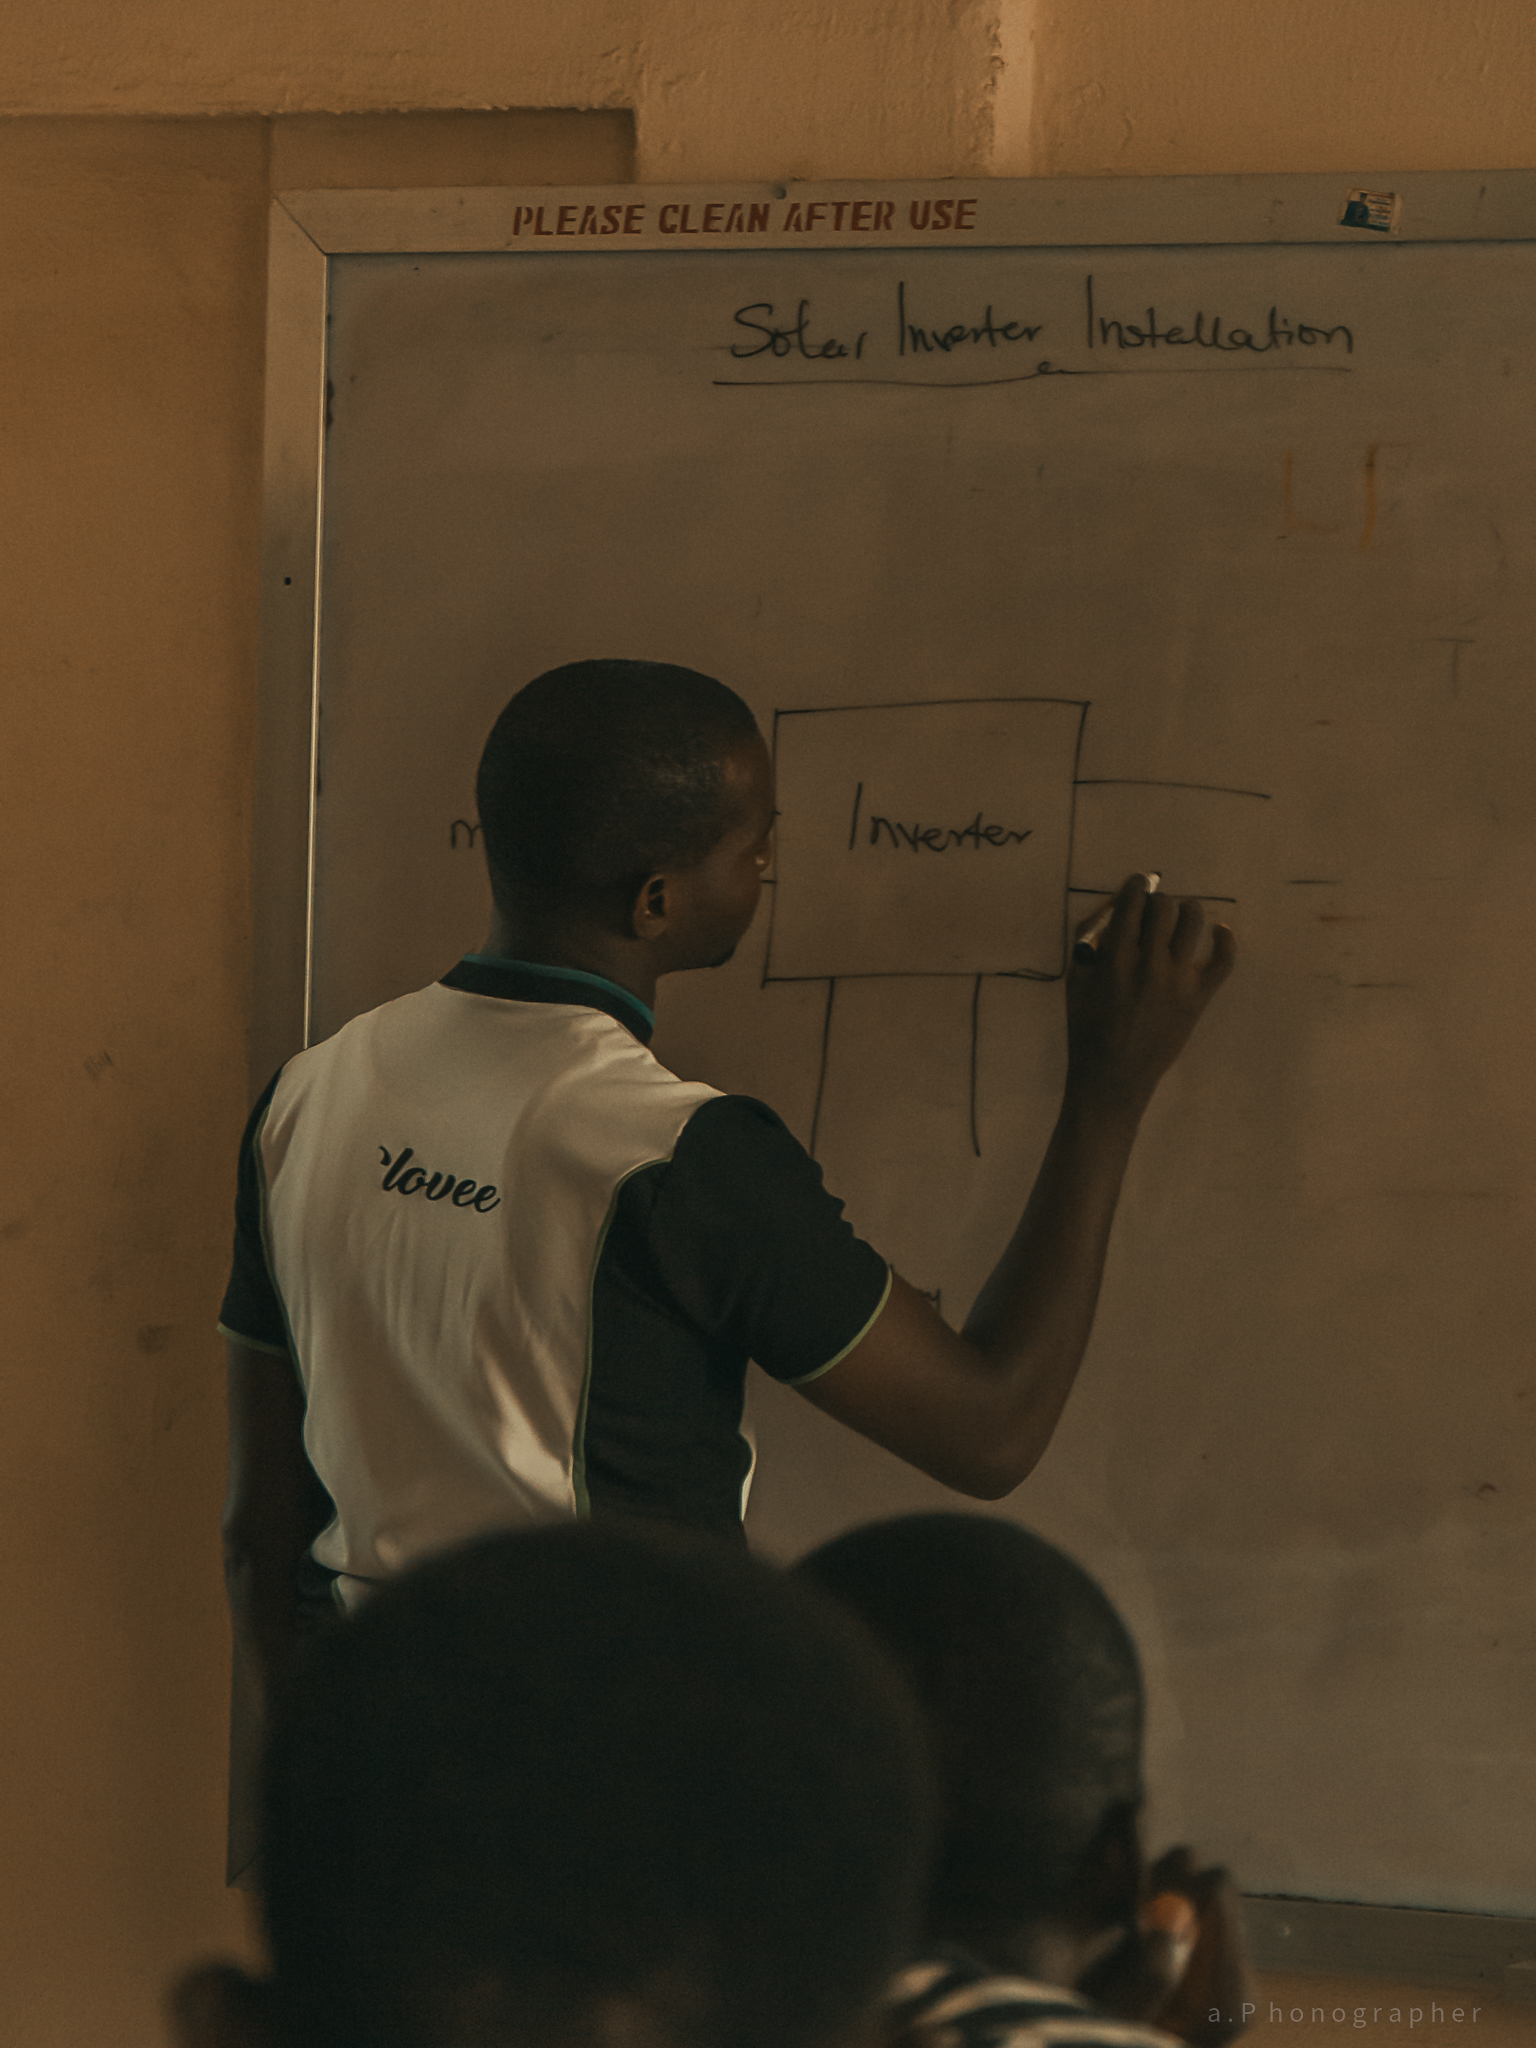 PLEASE CLEAN AFTER USE
Solar Inverter Installation
Inverter
lovee
a.Phonographer